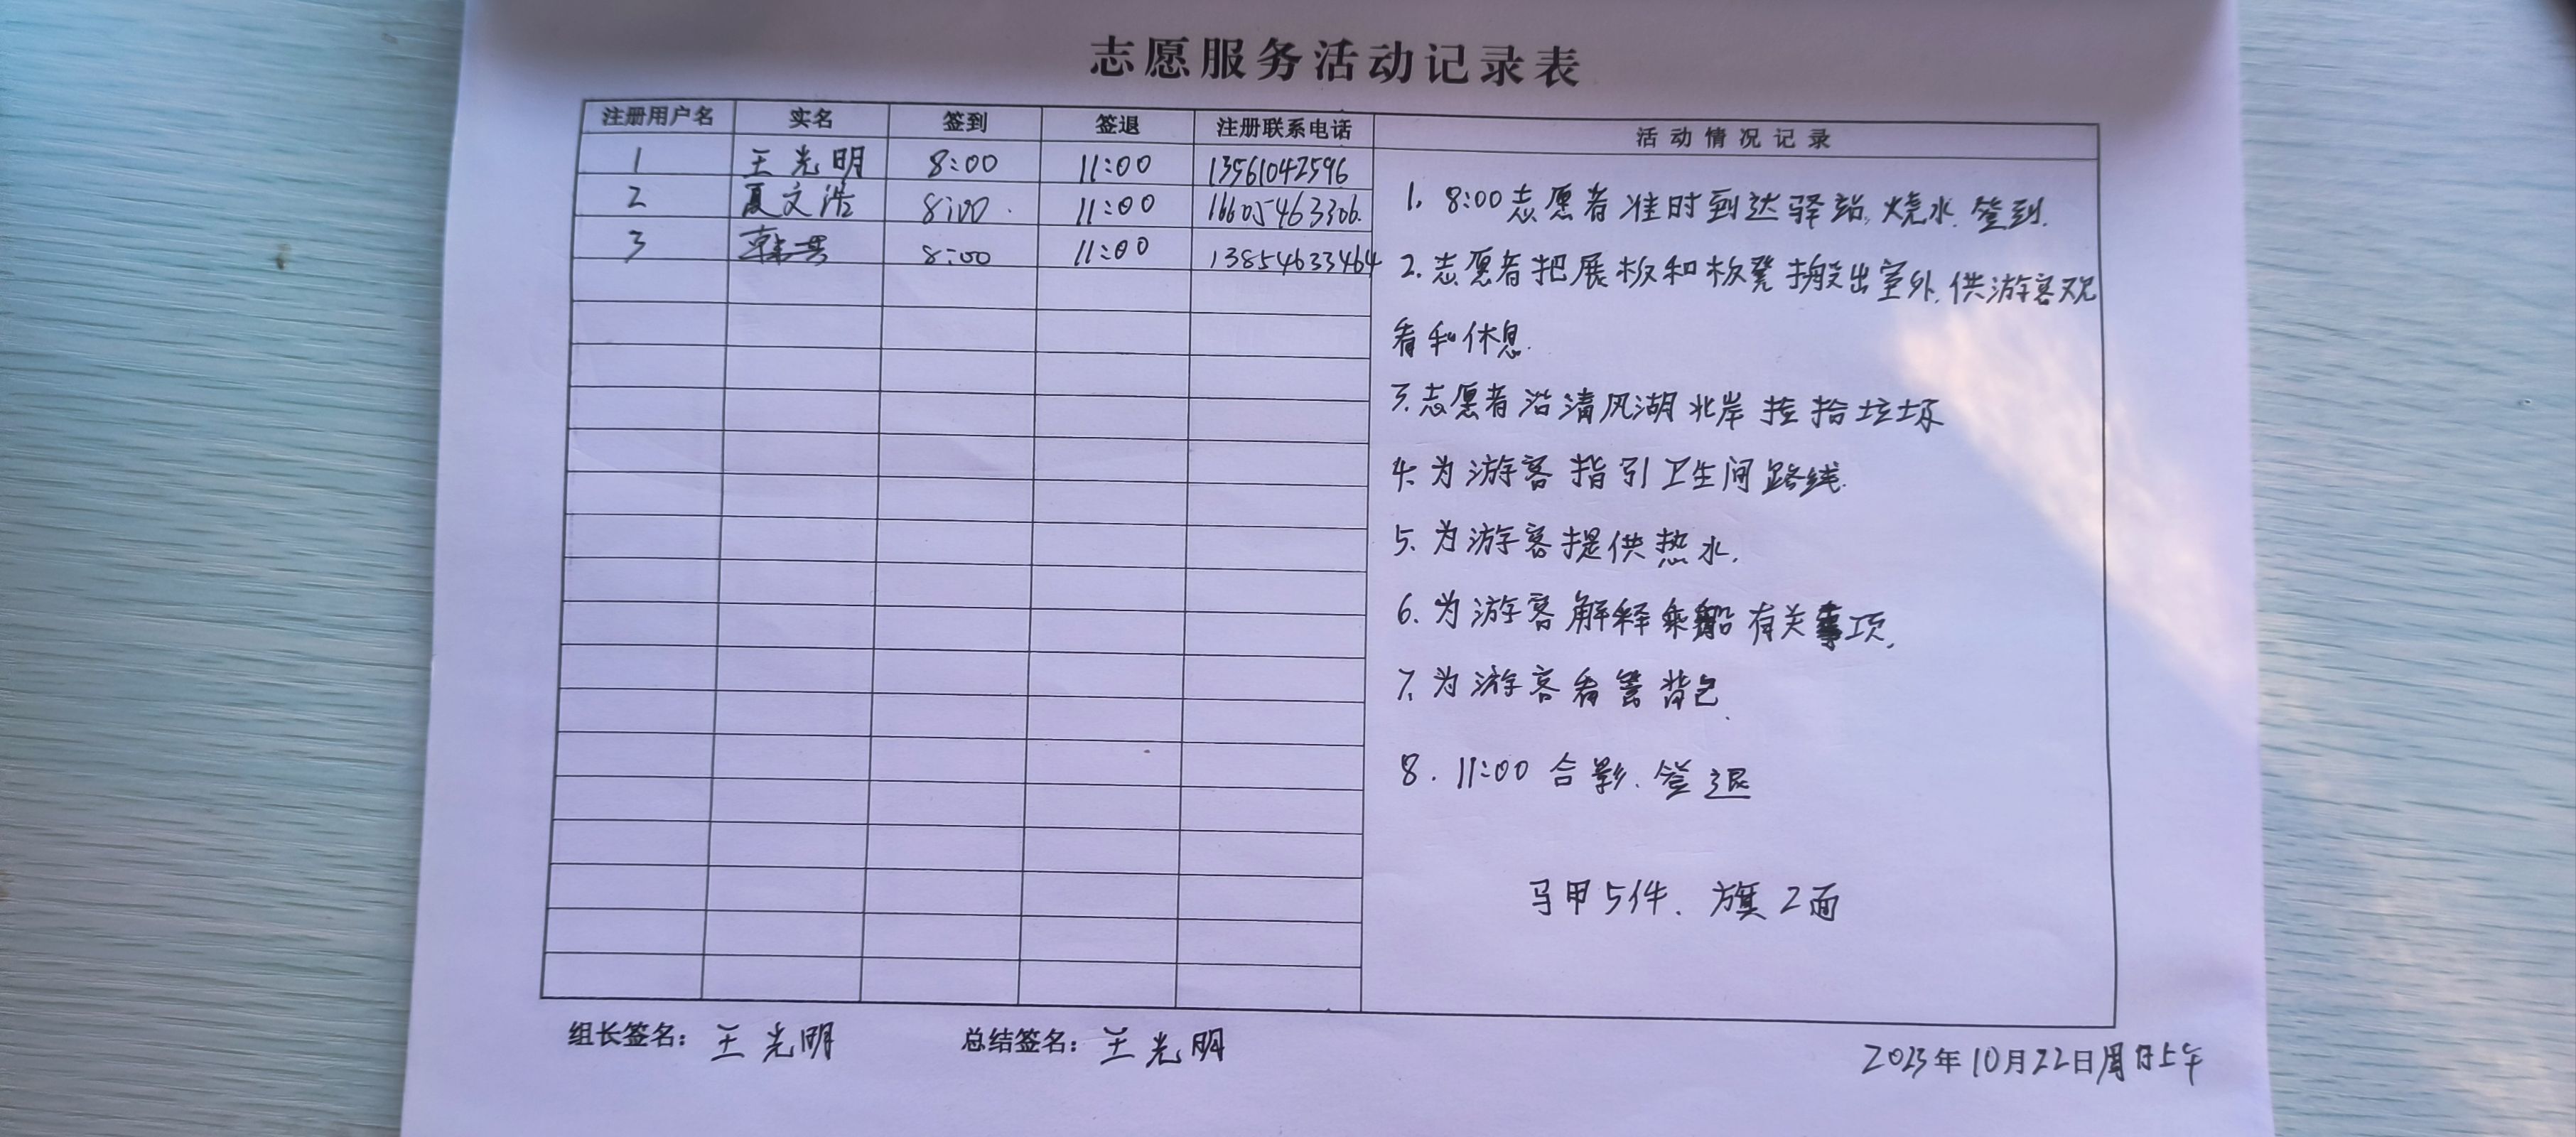 志愿服务活动记录表
注册用户名 实名 签到 签退 注册联系电话 活动情况记录
1 王光明 8:00 11:00 13561042596
2 夏文浩 8:00 11:00 16605463306.
3 8:00 11:00 13854633464
1. 8:00志愿者准时到达驿站,烧水.签到.
2.志愿者把展板和板凳搬出室外,供游客观
看和休息.
3.志愿者沿清风湖北岸捡拾垃圾
4.为游客指引卫生间路线.
5.为游客提供热水.
6.为游客解释乘船有关事项.
7.为游客看管背包.
8.11:00合影.签退
马甲5件、旗2面
组长签名：王光明 总结签名：王光明
2023年10月22日周日上午